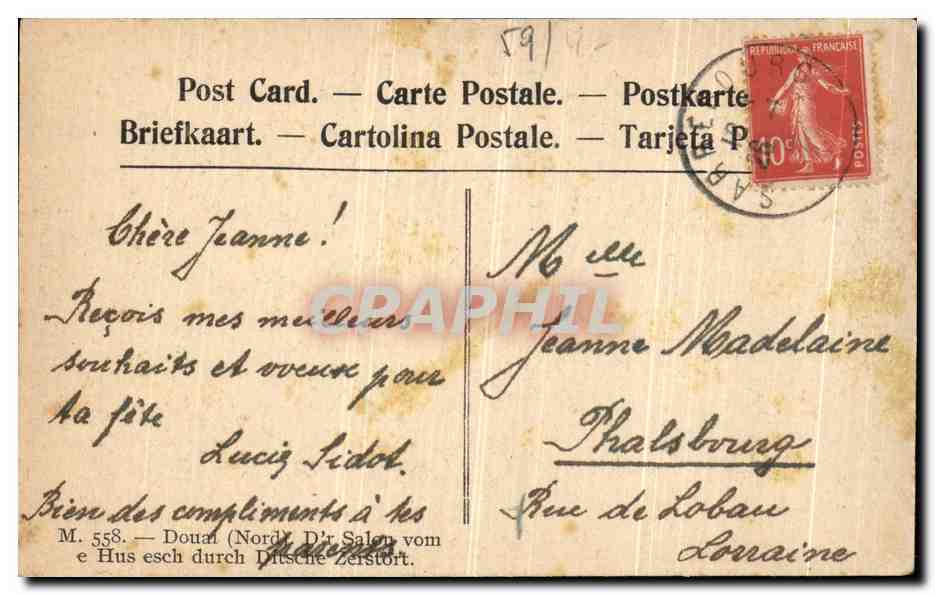 59/4-
Post Card. — Carte Postale. — Postkarte
Briefkaart. — Cartolina Postale. — Tarjeta P
REPUBLIQUE FRANÇAISE
10c
POSTES
SARREBOURG
Chère Jeanne!
Reçois mes meilleurs
souhaits et voeux pour
ta fête
Lucie Sidot.
Bien des compliments à tes
parents.
M. 558. — Douai (Nord). D'r Salon vom
e Hus esch durch Ditsche Zerstört.
Melle
Jeanne Madelaine
Phalsbourg
Rue de Lobau
Lorraine
CRAPHIL